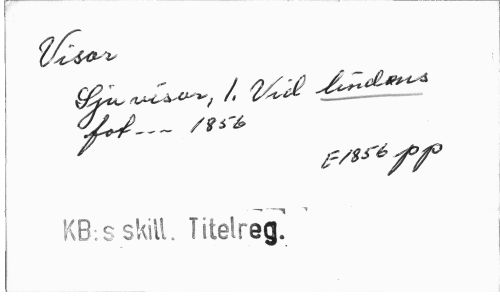 Visor
Sju visor, 1. Vid lindens
fot --- 1856
E1856 pp
KB:s skill. Titelreg.